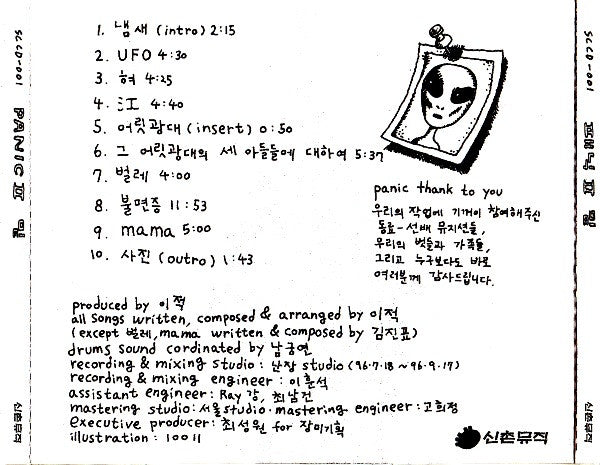 SCCD-001 PANIC II 밑 신촌뮤직
1. 냄새 (intro) 2:15
2. UFO 4:30
3. 혀 4:25
4. 강 4:40
5. 어릿광대 (insert) 0:50
6. 그 어릿광대의 세 아들들에 대하여 5:37
7. 벌레 4:00
8. 불면증 11:53
9. mama 5:00
10. 사진 (outro) 1:43
panic thank to you
우리의 작업에 기꺼이 참여해주신
동료-선배 뮤지션들,
우리의 벗들과 가족들,
그리고 누구보다도 바로
여러분께 감사드립니다.
produced by 이적
all songs written, composed & arranged by 이적
(except 벌레, mama written & composed by 김진표)
drums sound cordinated by 남궁연
recording & mixing studio : 난장 studio ('96.7.18 ~ '96.9.17)
recording & mixing engineer : 이훈석
assistant engineer : Ray 강, 최남진
mastering studio : 서울 studio · mastering engineer : 고희정
executive producer : 최성원 for 장미기획
illustration : 1001
신촌뮤직
SCCD-001 패닉 II 밑 신촌뮤직